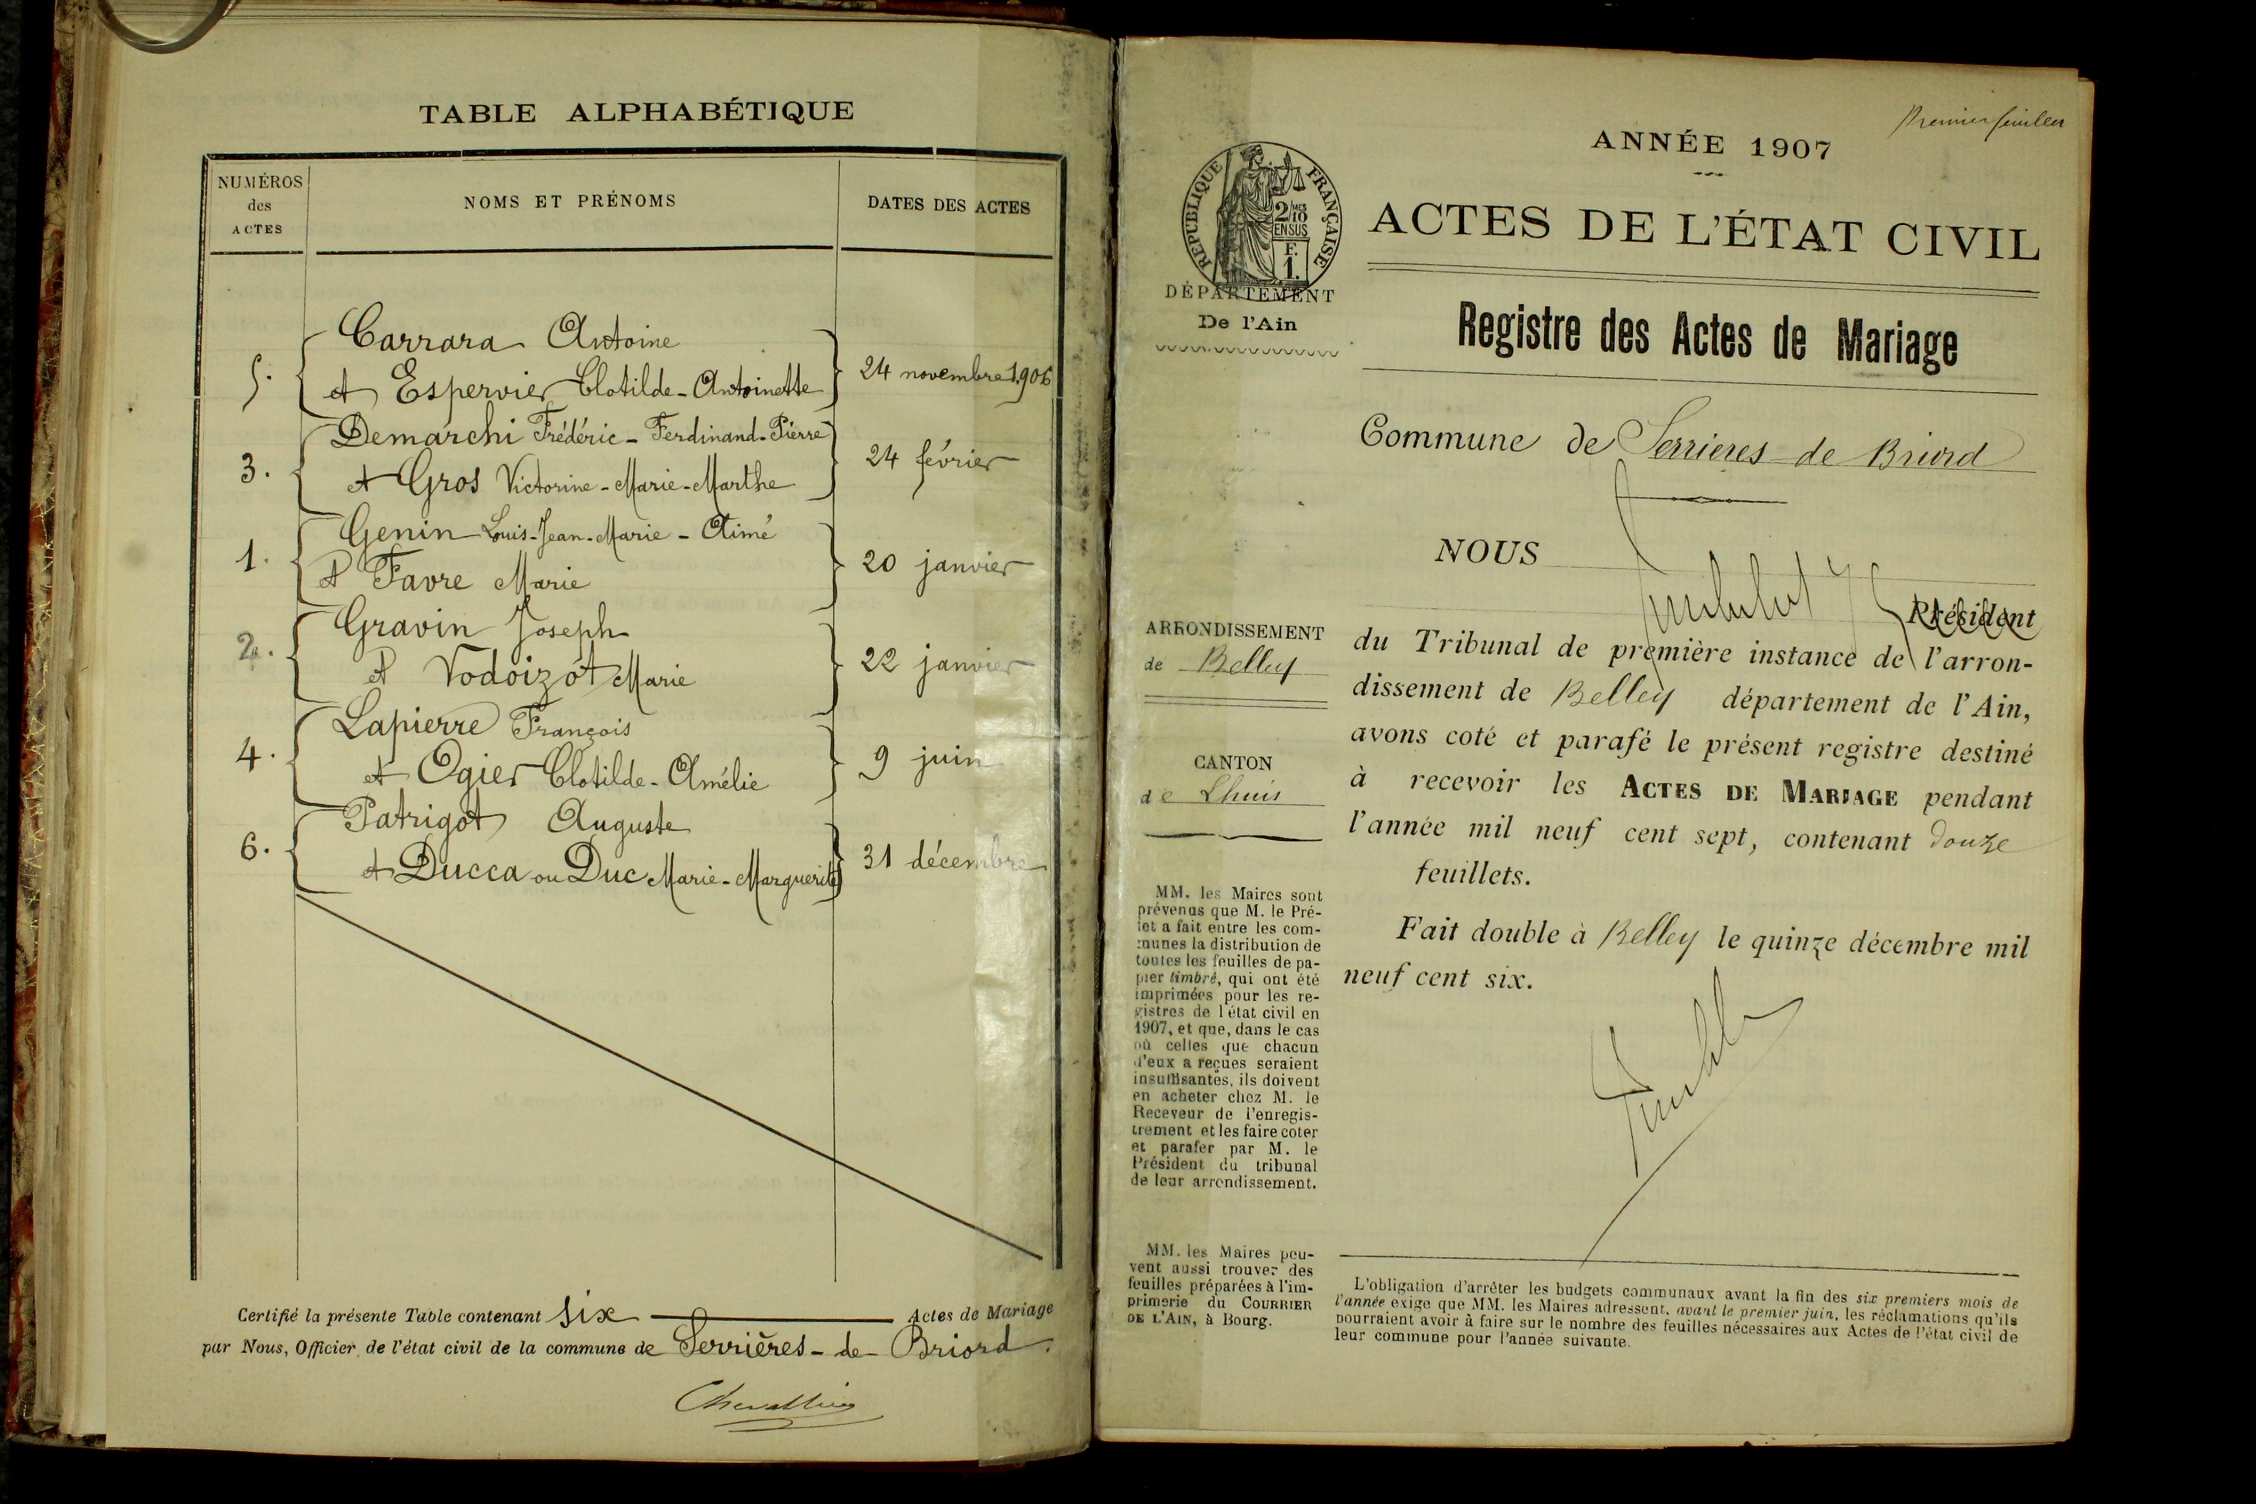 TABLE ALPHABÉTIQUE
NUMÉROS
des
ACTES
NOMS ET PRÉNOMS
DATES DES ACTES
Carrara Antoine
5.
et Espervier Clotilde-Antoinette
24 novembre 1906
Demarchi Frédéric-Ferdinand-Pierre
3.
et Gros Victorine-Marie-Marthe
24 février
Genin Louis-Jean-Marie-Aimé
1.
et Favre Marie
20 janvier
Gravin Joseph
2.
et Vodoizot Marie
22 janvier
Lapierre François
4.
et Ogier Clotilde-Amélie
9 juin
Patrigot Auguste
6.
et Ducca ou Duc Marie-Marguerite
31 décembre
Certifié la présente Table contenant six Actes de Mariage
par Nous, Officier de l'état civil de la commune de Serrières-de-Briord.
Chevallier
Premier feuillet
ANNÉE 1907
RÉPUBLIQUE FRANÇAISE
2/10 MES
EN SUS
F.
1.
ACTES DE L'ÉTAT CIVIL
DÉPARTEMENT
De l'Ain
Registre des Actes de Mariage
Commune de Serrieres de Briord
NOUS
Président
ARRONDISSEMENT
de Belley
CANTON
de Lhuis
du Tribunal de première instance de l'arron-
dissement de Belley département de l'Ain,
avons coté et parafé le présent registre destiné
à recevoir les ACTES DE MARIAGE pendant
l'année mil neuf cent sept, contenant douze
feuillets.
Fait double à Belley le quinze décembre mil
neuf cent six.
MM. les Maires sont
prévenus que M. le Pré-
fet a fait entre les com-
munes la distribution de
toutes les feuilles de pa-
pier timbré, qui ont été
imprimées pour les re-
gistres de l'état civil en
1907, et que, dans le cas
où celles que chacun
d'eux a reçues seraient
insuffisantes, ils doivent
en acheter chez M. le
Receveur de l'enregis-
trement et les faire coter
et parafer par M. le
Président du tribunal
de leur arrondissement.
MM. les Maires peu-
vent aussi trouver des
feuilles préparées à l'im-
primerie du COURRIER
DE L'AIN, à Bourg.
L'obligation d'arrêter les budgets communaux avant la fin des six premiers mois de
l'année exige que MM. les Maires adressent, avant le premier juin, les réclamations qu'ils
pourraient avoir à faire sur le nombre des feuilles nécessaires aux Actes de l'état civil de
leur commune pour l'année suivante.